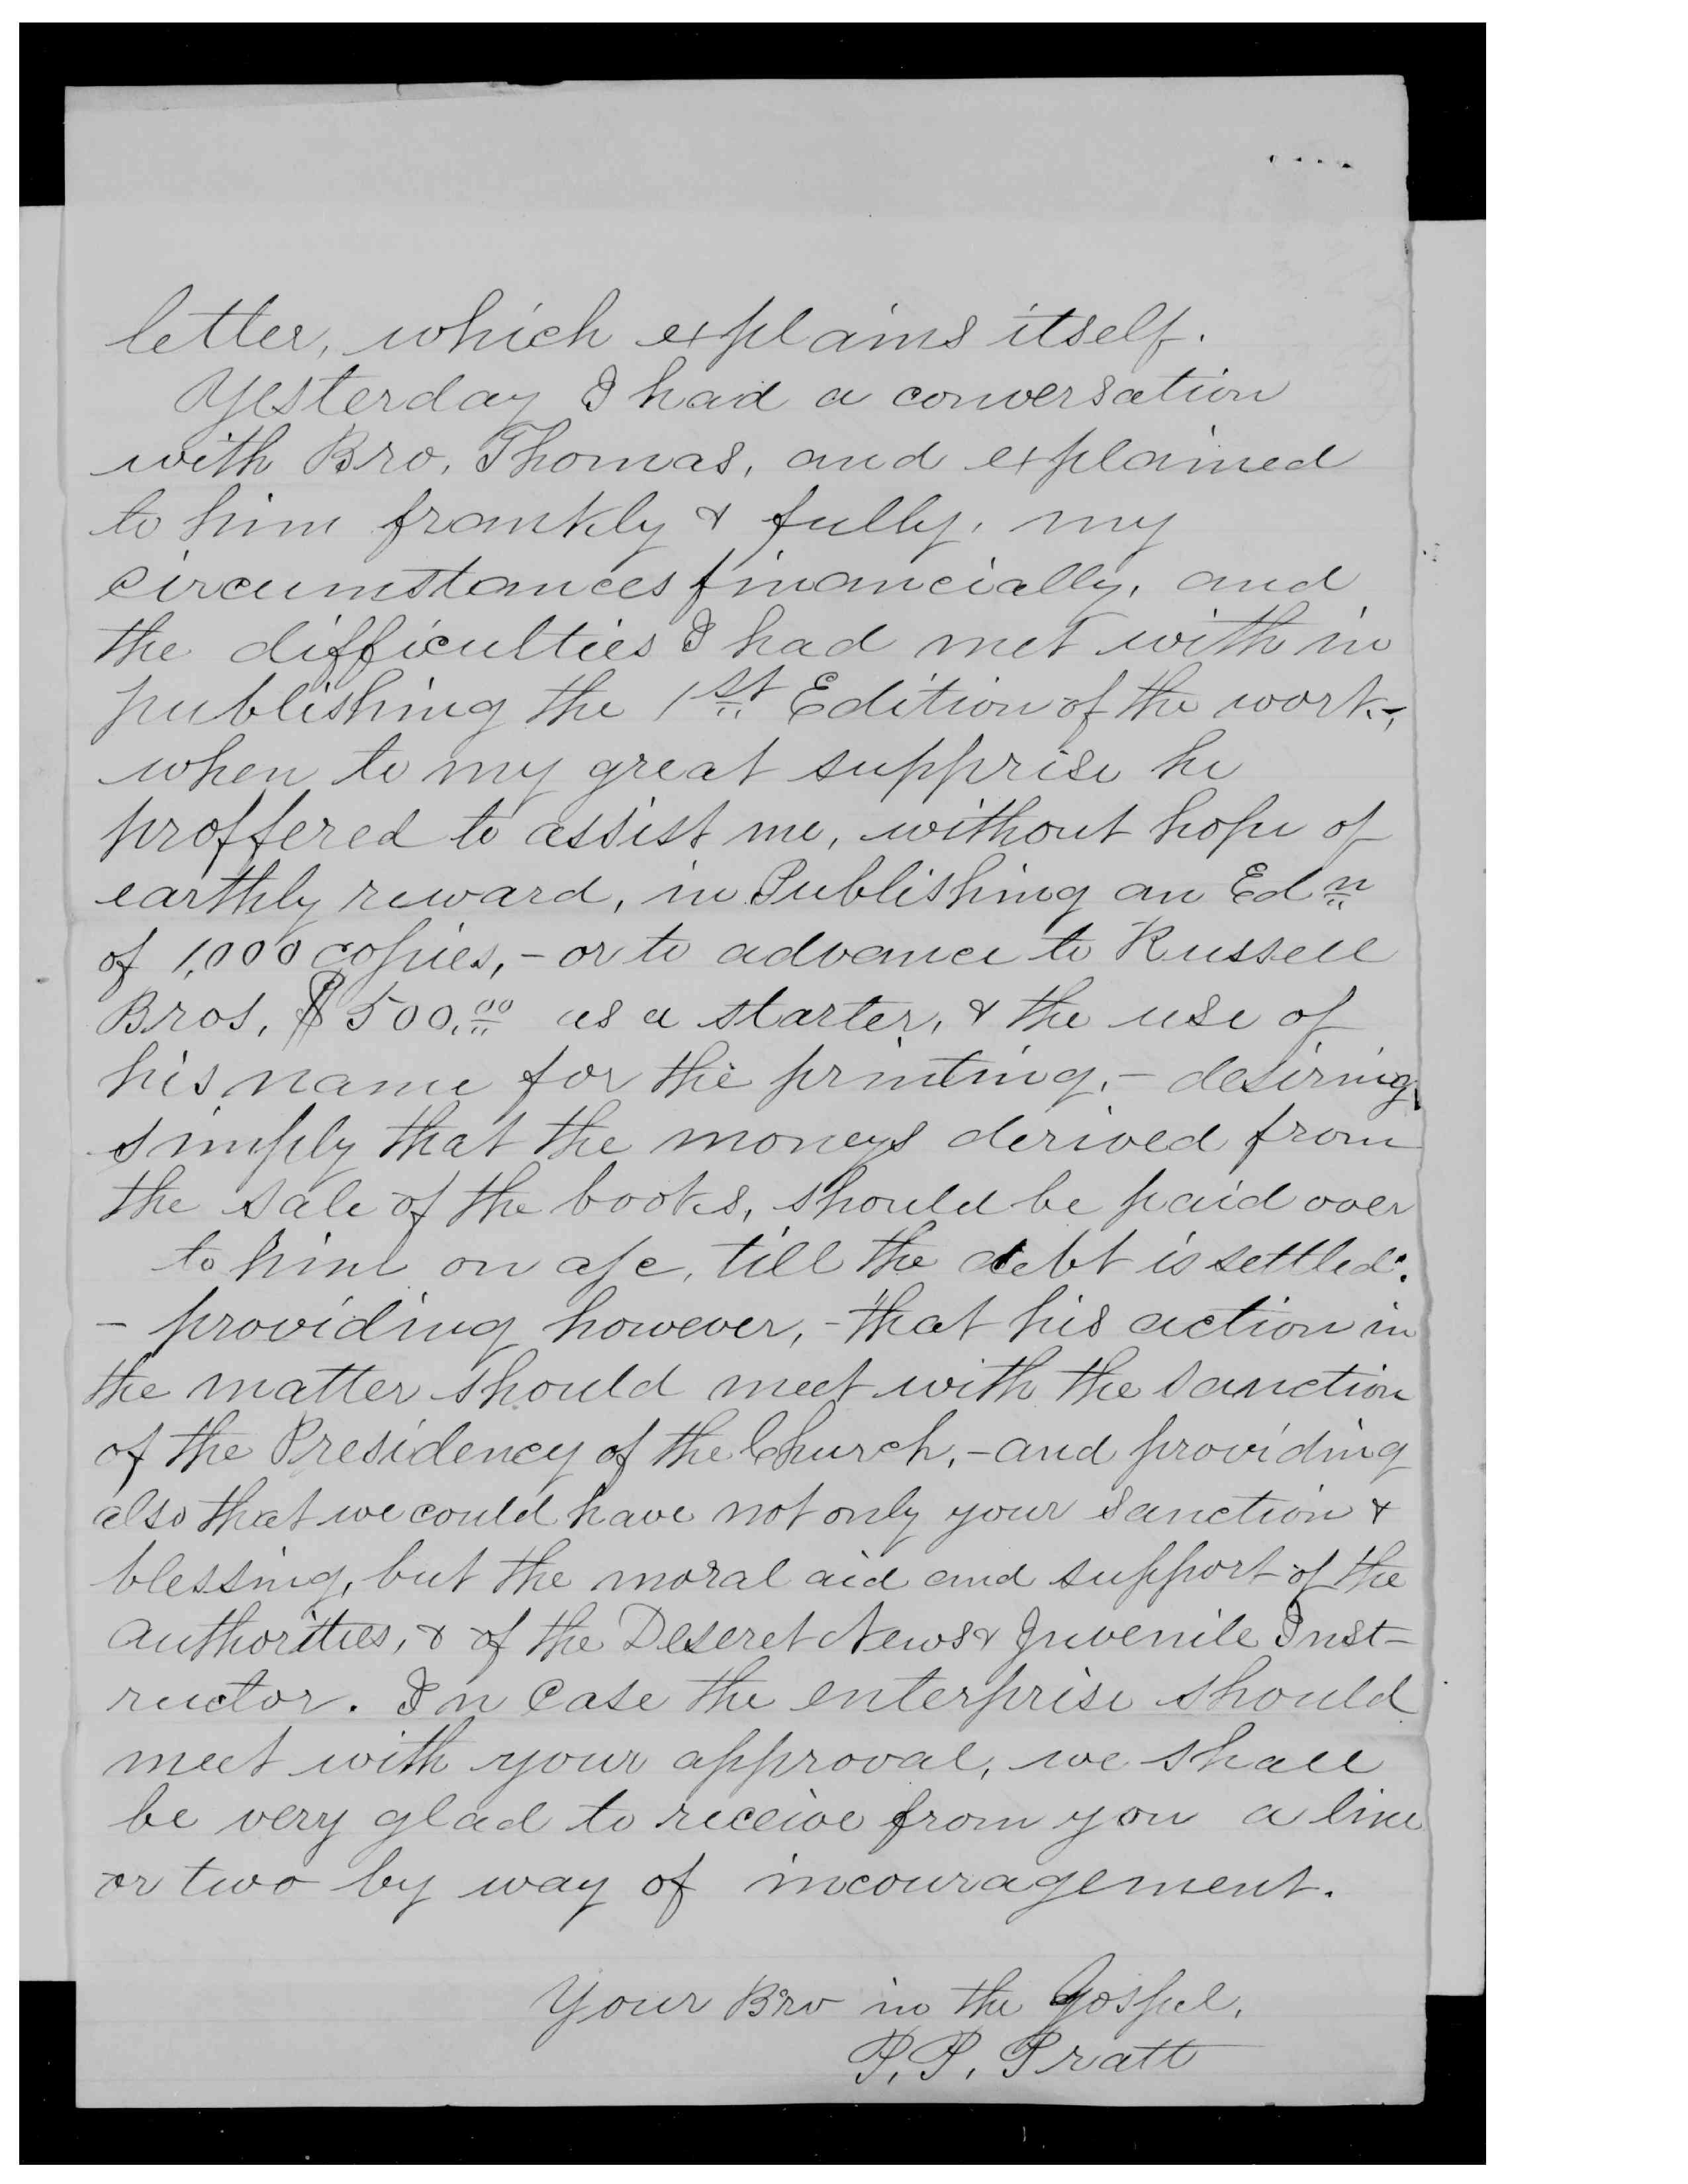 letter, which explains itself.
Yesterday I had a conversation
with Bro, Thomas, and explained
to him frankly & fully, my
circumstances financially, and
the difficulties I had met with in
publishing the 1st Edition of the work,-
when to my great supprise he
proffered to assist me, without hope of
earthly reward, in Publishing an Edn
of 1,000 copies,- or to advance to Russell
Bros, $500.00 as a starter, & the use of
his name for the printing,- desiring
simply that the moneys derived from
the sale of the books, should be paid over
to him on a/c, till the debt is settled:
- providing however,- that his action in
the matter should meet with the sanction
of the Presidency of the Church,- and providing
also that we could have not only your sanction &
blessing, but the moral aid and support of the
authorities, & of the Deseret News & Juvenile Inst-
ructor. In case the enterprise should
meet with your approval, we shall
be very glad to receive from you a line
or two by way of incouragement.
Your Bro in the Gospel,
P. P. Pratt